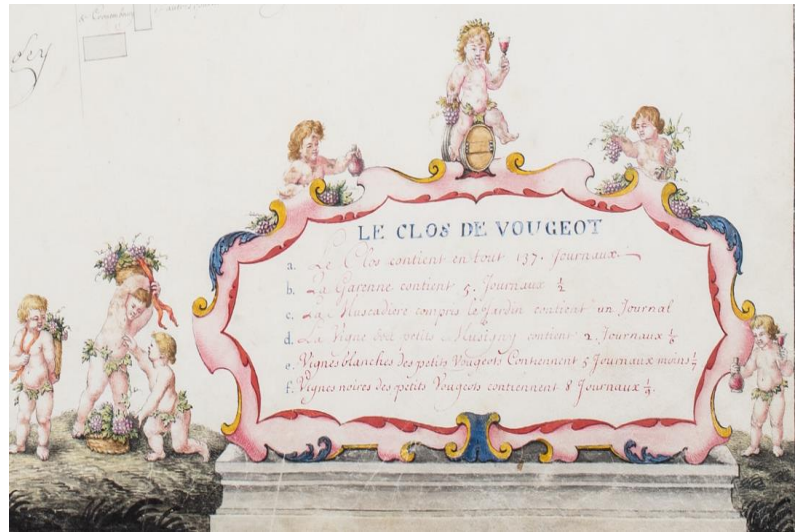 sey
LE CLOS DE VOUGEOT
a. Le Clos contient en tout 137. Journaux.
b. La Garenne contient 5. Journaux ½
c. La Muscadiere compris le Jardin contient un Journal
d. La Vigne petits Musigny contient 2. Journaux
e. Vignes blanches des petits Vougeots Contiennent 5 Journaux moins
f. Vignes noires des petits Vougeots contiennent 8 Journaux